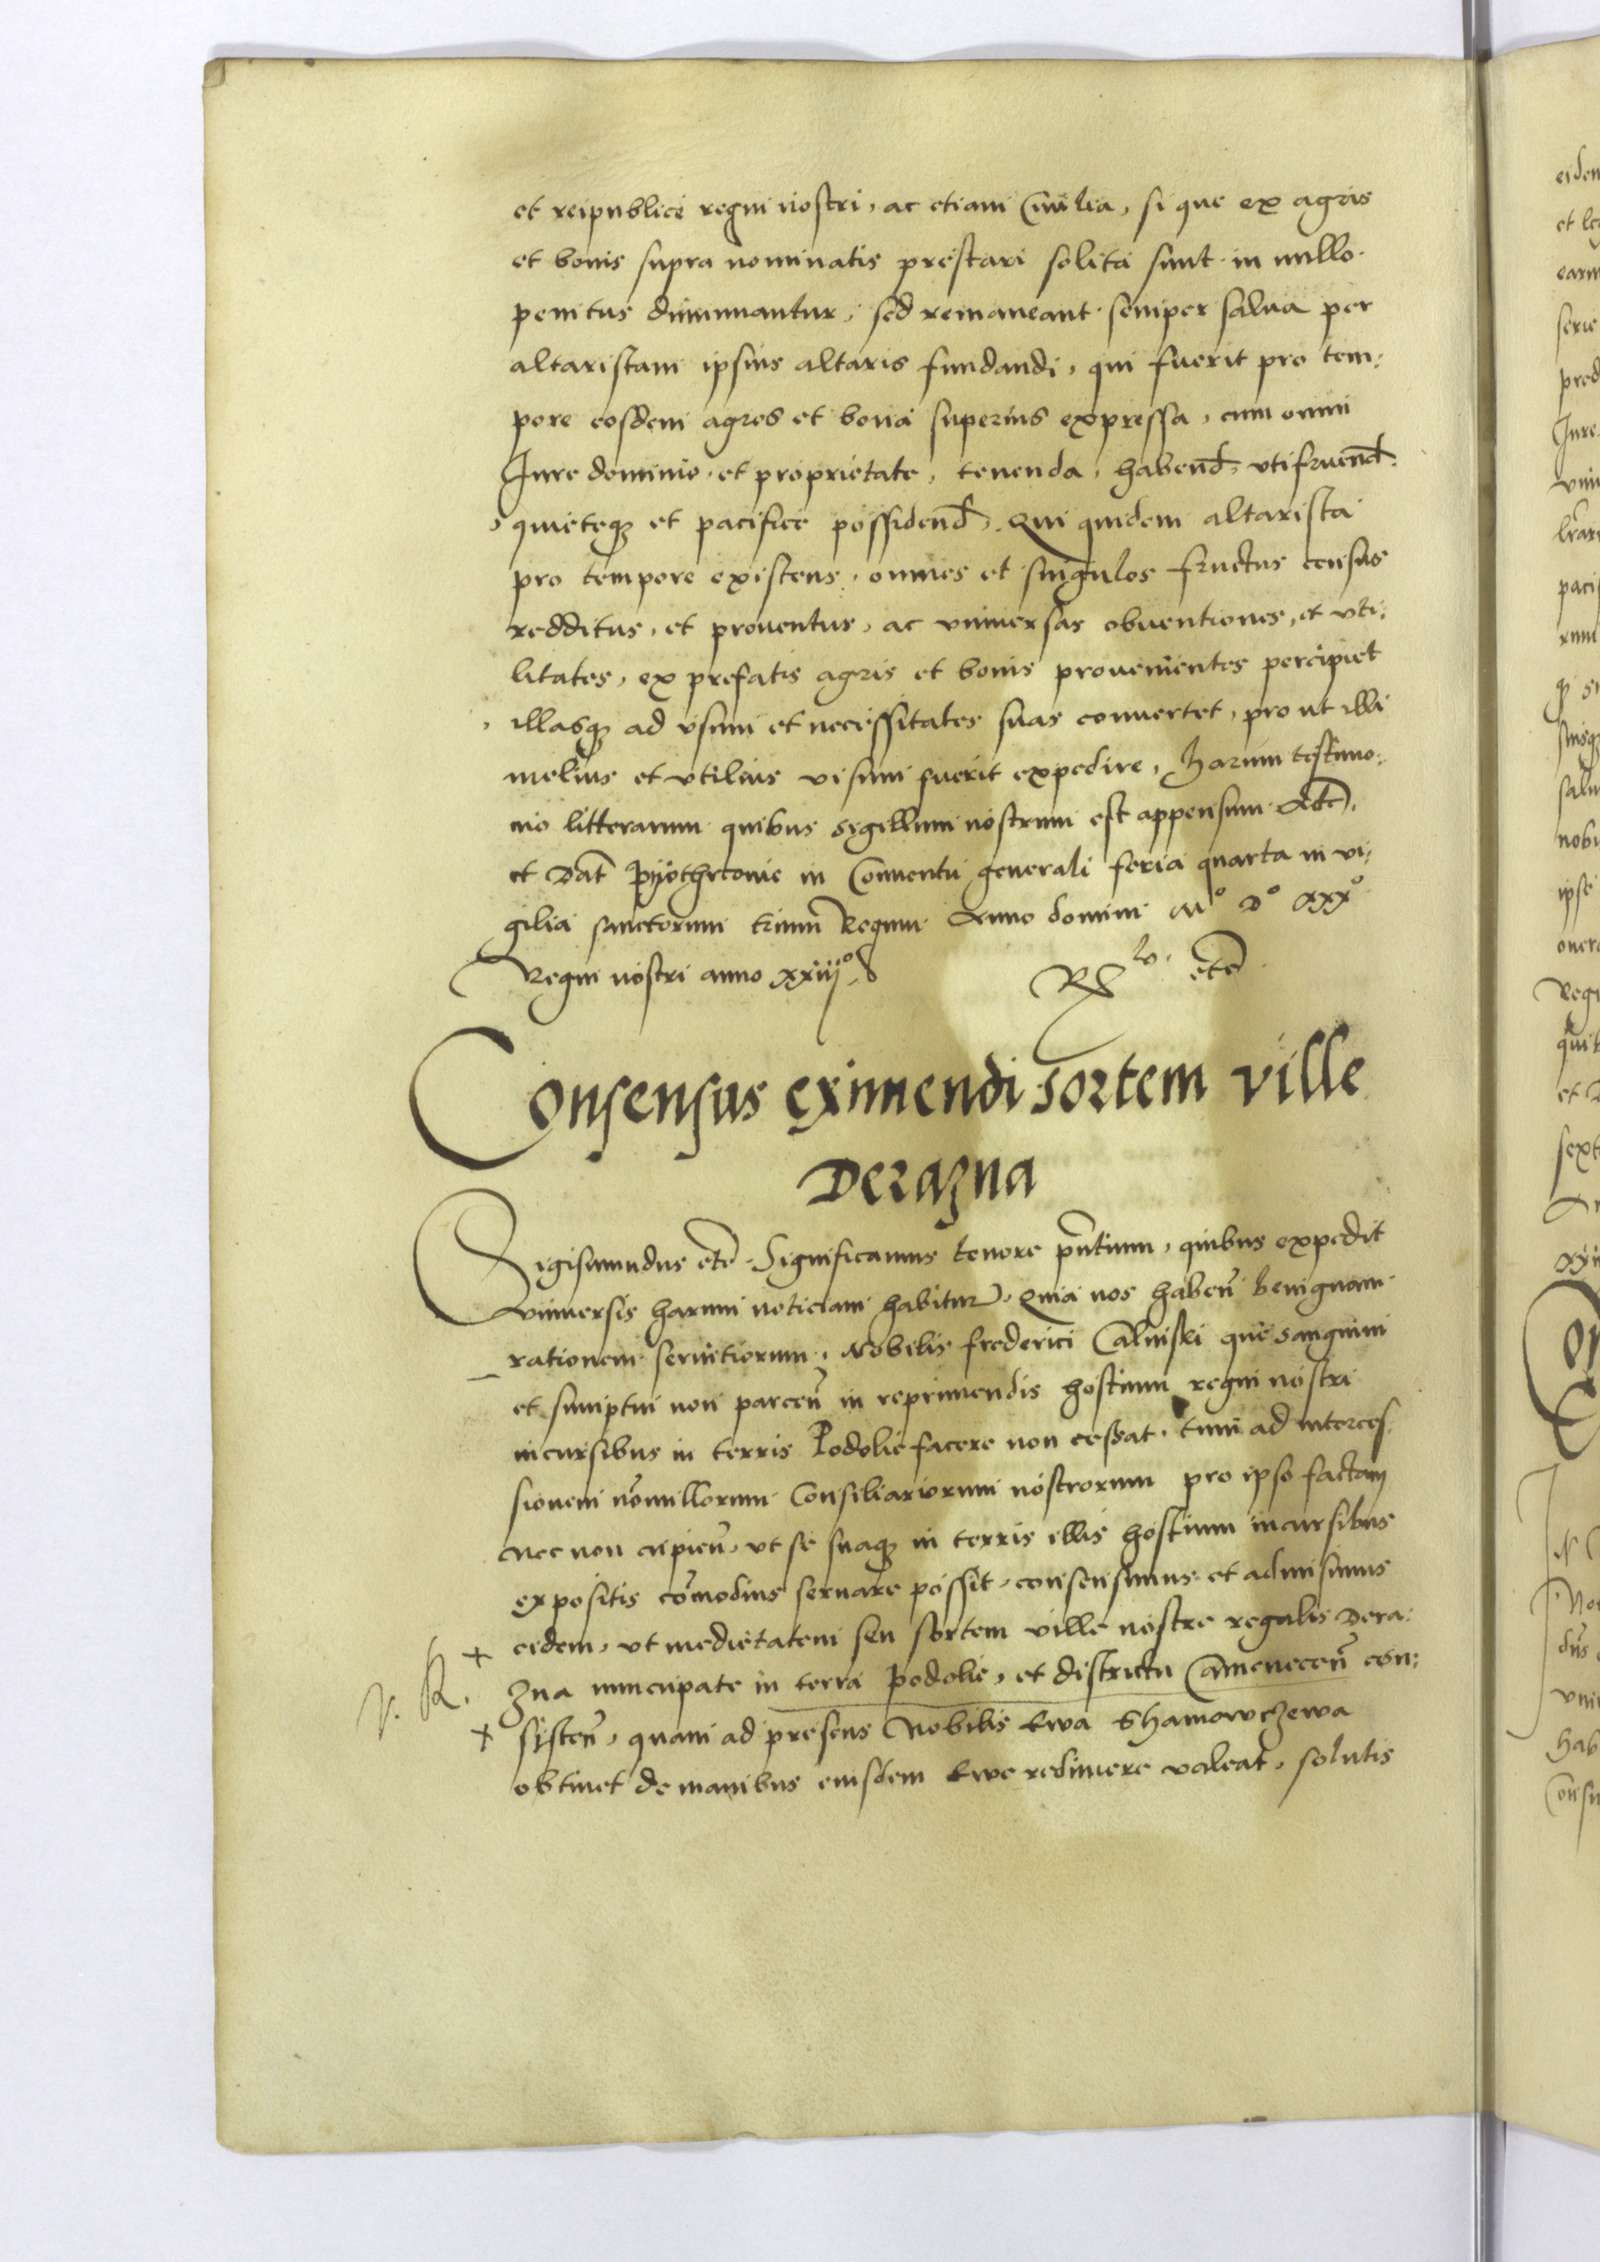 et reipublice regni nostri, ac etiam Civilia, si que ex agris
et bonis supra nominatis prestari solita sunt in nullo
penitus diminuantur, sed remaneant semper salva per
altaristam ipsius altaris fundandi, qui fuerit pro tem:
pore eosdem agros et bona superius expressa, cum omni
Jure dominio et proprietate, tenenda, habend, utifruend:
quieteqz et pacifice possidend, Qui quidem altarista
pro tempore existens, omnes et singulos fructus census
redditus, et proventus, ac universas obventiones, et uti:
litates, ex prefatis agris et bonis provenientes percipiet
illasqz ad usum et necessitates suas convertet, prout illi
melius et utilius visum fuerit expedire, Harum testimo:
nio litterarum quibus sigillum nostrum est appensum Acte
et Dat Pyothrconie in Conventu generali feria quarta in vi:
gilia sanctorum trium Regum Anno domini Mº Dº XXXº
Regni nostri anno xxiiijº
etc
Consensus eximendi sortem ville
Derazna
Sigismundus etc Significamus tenore pntium, quibus expedit
universis harum noticiam habitur, Quia nos haben benignam
rationem servitiorum, Nobilis frederici Calinski que sanguini
et sumptui non parcen in reprimendis hostium regni nostri
incursibus in terris Podolie facere non cessat, tum ad interces
sionem nonnullorum Consiliariorum nostrorum pro ipso factam
nec non cupien, ut se suaqz in terris illis hostium incursibus
expositis comodius servare possit, consensimus et admisimus
eidem, ut medietatem seu sortem ville nostre regalis Dera:
zna nuncupate in terra podolie, et districtu Camenecen con:
sisten, quam ad presens Nobilis Ewa Shamowczewa
obtinet de manibus eiusdem Ewe redimere valeat, solutis